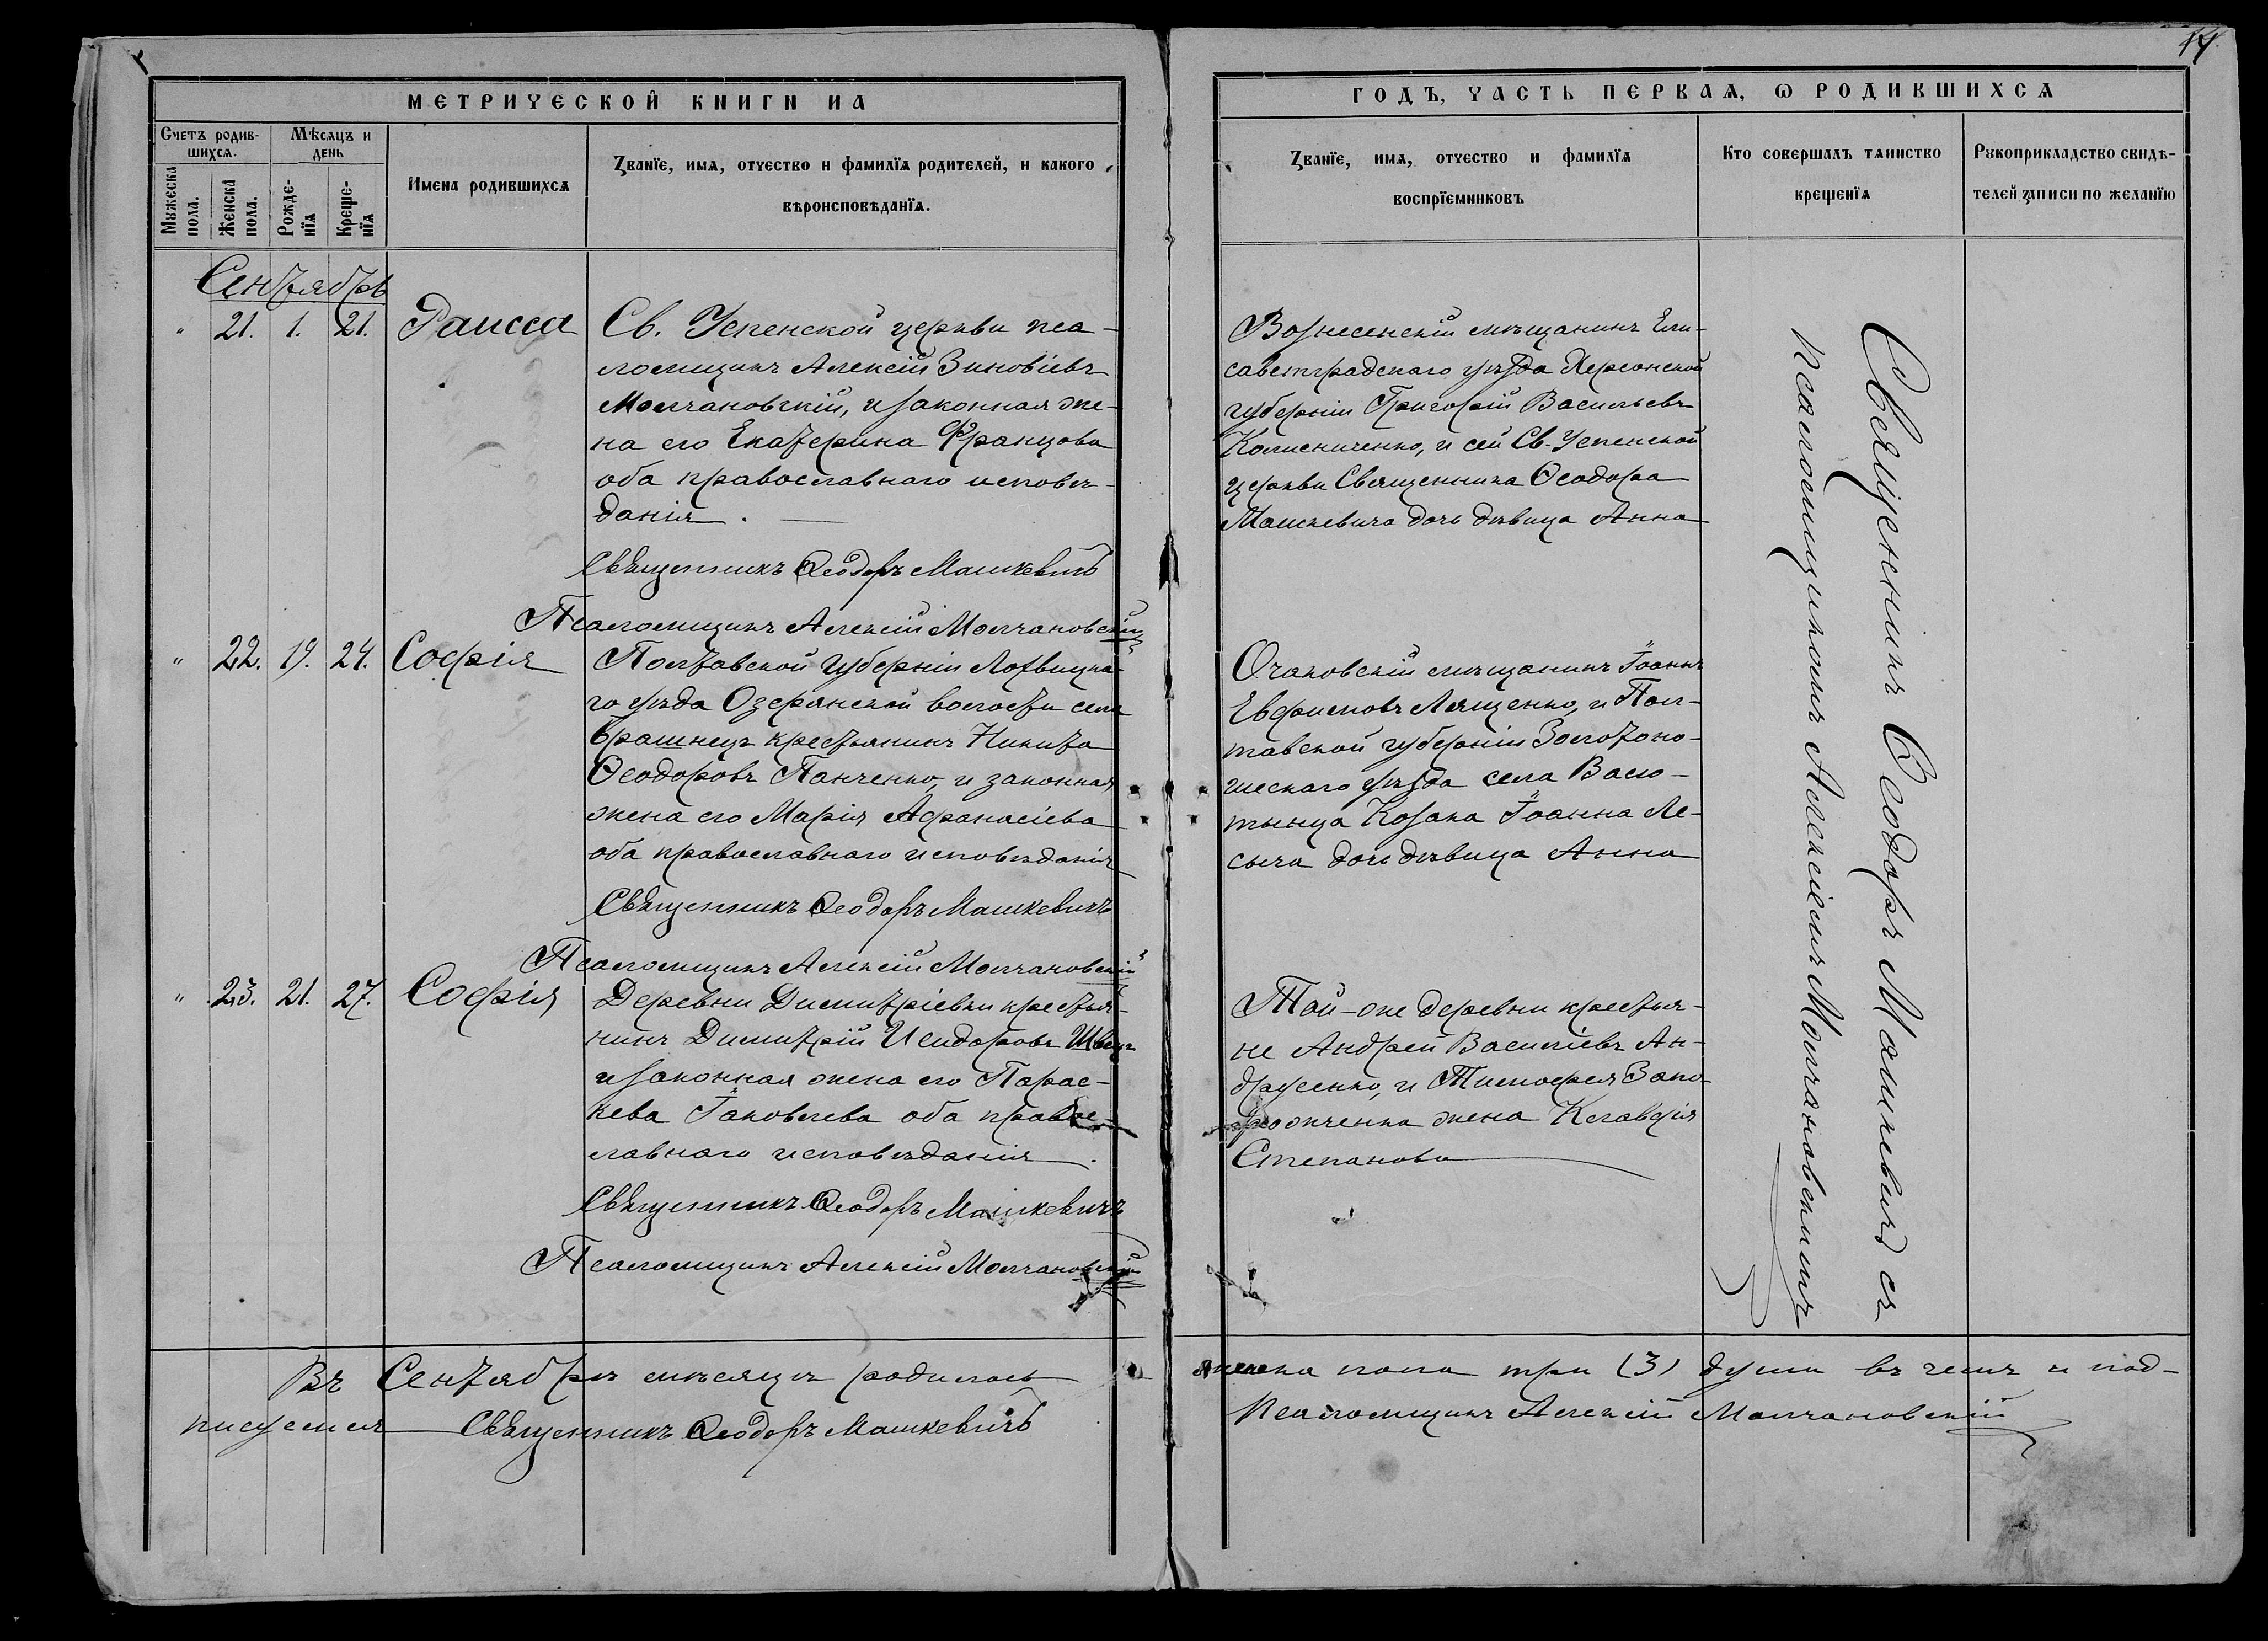 14.
МЕТРИЧЕСКОЙ КНИГИ НА
ГОДЪ, ЧАСТЬ ПЕРВАЯ, Ѡ РОДИВШИХСЯ
Счетъ родив-
шихся.
Мѣсяцъ и
день
Мужеска
пола.
Женска
пола.
Рожде-
нїя
Креще-
нїя
Имена родившихся
Званїе, имя, отчество и фамилїя родителей, и какого
вѣроисповѣданїя.
Званїе, имя, отчество и фамилїя
воспрїемниковъ
Кто совершалъ таинство
крещенїя
Рукоприкладство свидѣ-
телей записи по желанїю
Сентябрь
" 21. 1. 21. Раисса
Св. Успенской церкви пса-
ломщикъ Алексій Зиновіевъ
Молчановскій, и законная же-
на его Екатерина Францова
оба православнаго исповѣ-
данія.
Священникъ Ѳеодоръ Машкевичъ
Псаломщикъ Алексій Молчановскій
Вознесенскій мѣщанинъ Ели-
саветградскаго уѣзда Херсонской
губерніи Григорій Васильевъ
Колисниченко, и сей Св. Успенской
церкви Священника Ѳеодора
Машкевича дочь дѣвица Анна
" 22. 19. 24. Софія
Полтавской губерніи Лохвицка-
го уѣзда Озерянской волости села
крестьянинъ Никита
Ѳеодоровъ Панченко, и законная
жена его Марія Афанасіева
оба православнаго исповѣданія
Священникъ Ѳеодоръ Машкевичъ
Псаломщикъ Алексій Молчановскій
Очаковскій мѣщанинъ Іоаннъ
Лященко, и Пол-
тавской губерніи Золотоно-
шескаго уѣзда села
Козака Іоанна Ле-
сыча дочь дѣвица Анна
" 23. 21. 27. Софія
Деревни Димитріевки крестья-
нинъ Димитрій Исидоровъ Швецъ
и законная жена его Парас-
кева Іаковлева оба правос-
лавнаго исповѣданія.
Священникъ Ѳеодоръ Машкевичъ
Псаломщикъ Алексій Молчановскій
Той-же деревни крестья-
не Андрей Василіевъ Ан-
друсенко, и Тимофея Запо-
рожченка жена Клавдія
Степанова
Священникъ Ѳеодоръ Машкевичъ съ
псаломщикомъ Алексіемъ Молчановскимъ
Въ Сентябрѣ мѣсяцѣ родилось женска пола три (3) души въ чемъ и под-
писуемся Священникъ Ѳеодоръ Машкевичъ Псаломщикъ Алексій Молчановскій